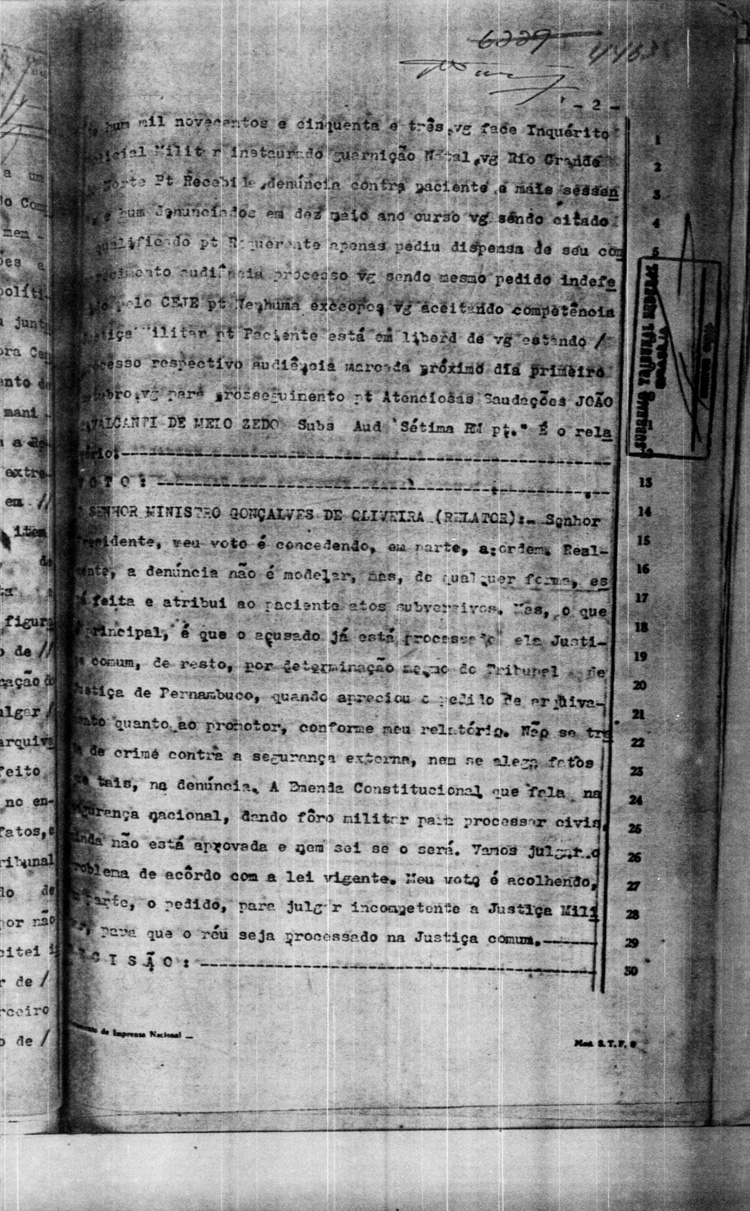 6229
4463
- 2 -
hum mil novecentos e cinquenta e três vg face Inquérito
icial Milit r instaurado guarnição Natal vg Rio Grande
Norte Pt Recebid denúncia contra paciente e mais sessen
e hum denunciados em dez maio ano curso vg sendo citado
qualificado pt Requerente apenas pediu dispensa de seu com
recimento audiência processo vg sendo mesmo pedido indefe
pelo CEJE pt Nenhuma vg aceitando competência
tiça ilitar pt Paciente está em liberd de vg estando /
cesso respectivo audiência marcada próximo dia primeiro
tembro vg para prosseguimento pt Atenciosas Saudações JOÃO
VALCANTI DE MELO ZEDO Subs Aud Sétima RM pt." É o rela
ório:-
O T O :
SENHOR MINISTRO GONÇALVES DE OLIVEIRA (RELATOR):- Senhor
residente, meu voto é concedendo, em parte, a ordem. Real-
ente, a denúncia não é modelar, mas, de qualquer forma, es
feita e atribui ao paciente atos subversivos. Mas, o que
principal, é que o acusado já está processado ela Justi-
comum, de resto, por determinação mesmo do Tribunal de
ustiça de Pernambuco, quando apreciou o pedido de arquiva-
ento quanto ao promotor, conforme meu relatório. Não se tra
de crime contra a segurança externa, nem se alega fatos
tais, na denúncia. A Emenda Constitucional que fala na
gurança nacional, dando fôro militar para processar civis,
inda não está aprovada e nem sei se o será. Vamos julgar o
roblema de acôrdo com a lei vigente. Meu voto é acolhendo,
parte, o pedido, para julgar incompetente a Justiça Mili
para que o réu seja processado na Justiça comum.-
C I S Ã O :
1
2
3
4
5
13
14
15
16
17
18
19
20
21
22
23
24
25
26
27
28
29
30
de Imprensa Nacional —
Mod. S. T. F.
a um
mem -
políti
junt
mani -
extre
em //
item
de
figura
o de //
cação d
ulgar /
arquiva
feito
no en-
fatos, e
ribunal
do de
por não
citei
r de /
rceiro
o de /